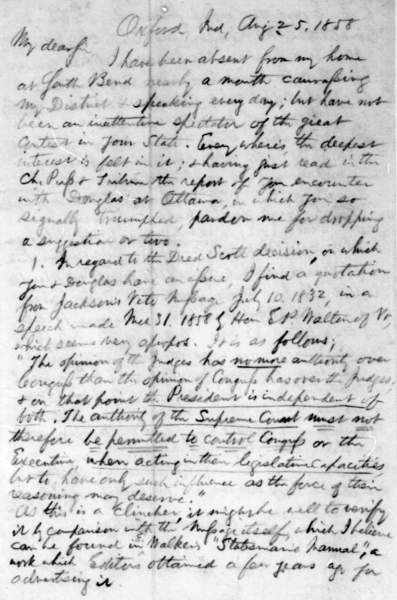 Oxford, Ind, Aug 25, 1858
My dear Sir
I have been absent from my home
at South Bend nearly a month canvassing
my District & speaking every day; but have not
been an inattentive spectator of the great
contest in your State. Every where the deepest
interest is felt in it; & having just read in the
Ch. Press & Tribune the report of your encounter
with Douglas at Ottawa, in which you so
signally triumphed, pardon me for dropping
a suggestion or two.
1. In regard to the Dred Scott decision, on which
you & Douglas have an issue, I find a quotation
from Jackson's Veto Message July 10, 1832, in a
speech made Mch 31, 1858 by Hon E.P. Walton of Vt,
which seems very apropos. It is as follows;
"The opinion of the Judges has no more authority over
Congress than the opinion of Congress has over the Judges,
& on that point the President is independent of
both. The authority of the Supreme Court must not
therefore be permitted to control Congress or the
Executive, when acting in their legislative capacities
but to have only such influence as the force of their
reasoning may deserve."
As this is a clincher it might be well to verify
it by comparison with the Message itself, which I believe
can be found in Walker's "Statesman's Manual," a
work which Editors obtained a few years ago for
advertising it.